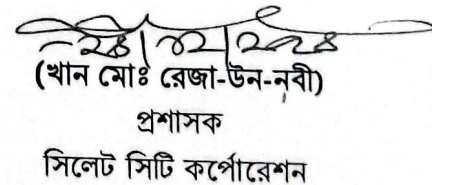 (খান মোঃ রেজা-উন-নবী)
প্রশাসক
সিলেট সিটি কর্পোরেশন